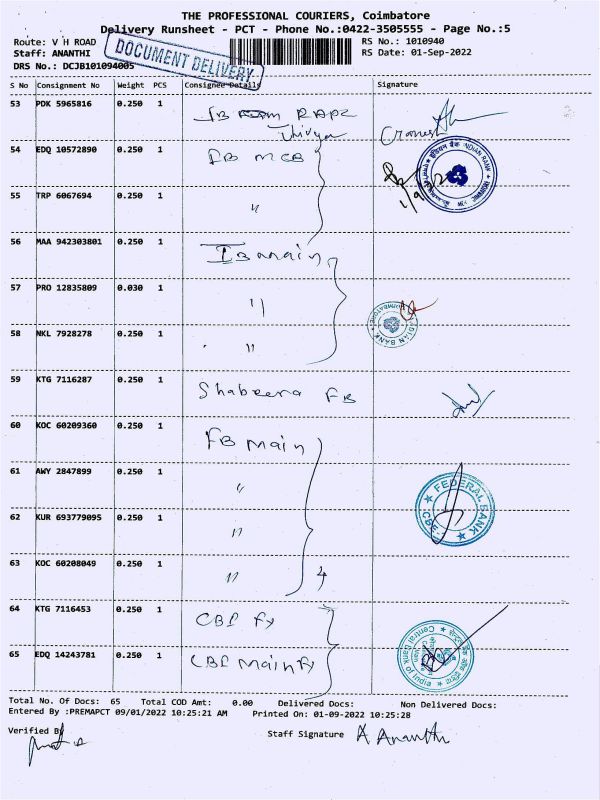 THE PROFESSIONAL COURIERS, Coimbatore
Delivery Runsheet - PCT - Phone No.:0422-3505555 - Page No.:5
Route: V H ROAD
Staff: ANANTHI
DRS No.: DCJB101094005
DOCUMENT DELIVERY
RS No.: 1010940
RS Date: 01-Sep-2022
S No Consignment No Weight PCS Consignee Details Signature
53 PDK 5965816 0.250 1
54 EDQ 10572890 0.250 1 IB MCB
55 TRP 6067694 0.250 1 "
56 MAA 942303801 0.250 1 IB main
57 PRO 12835809 0.030 1 "
58 NKL 7928278 0.250 1 "
59 KTG 7116287 0.250 1 Shabeena FB
60 KOC 60209360 0.250 1 FB Main
61 AWY 2847899 0.250 1 "
62 KUR 693779095 0.250 1 "
63 KOC 60208049 0.250 1 " 4
FEDERAL BANK
CBE
64 KTG 7116453 0.250 1 CBI Fy
65 EDQ 14243781 0.250 1 CBI Main Fy
Central Bank of India
Total No. Of Docs: 65 Total COD Amt: 0.00 Delivered Docs: Non Delivered Docs:
Entered By :PREMAPCT 09/01/2022 10:25:21 AM Printed On: 01-09-2022 10:25:28
Verified By
Staff Signature A Ananthi